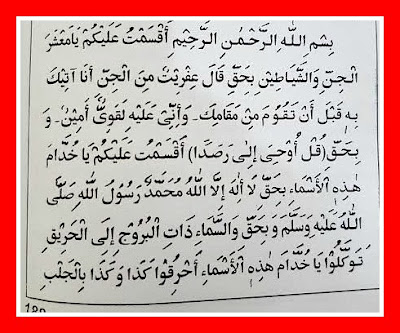 بِسْمِ اللّٰهِ الرَّحْمٰنِ الرَّحِيْمِ اَقْسَمْتُ عَلَيْكُمْ يَامَعْشَرَ
الْجِنِّ وَالشَّيَاطِيْنِ بِحَقِّ قَالَ عِفْرِيْتٌ مِنَ الْجِنِّ اَنَا آتِيْكَ
بِهٖ قَبْلَ اَنْ تَقُوْمَ مِنْ مَقَامِكَ۔ وَاِنِّيْ عَلَيْهِ لَقَوِيٌّ اَمِيْنٌ۔ وَ
بِحَقِّ (قُلْ اُوْحِيَ اِلٰى رَصَدًا) اَقْسَمْتُ عَلَيْكُمْ يَا خُدَّامَ
هٰذِهِ الْاَسْمَاءِ بِحَقِّ لَا اِلٰهَ اِلَّا اللّٰهُ مُحَمَّدٌ رَسُوْلُ اللّٰهِ صَلَّى
اللّٰهُ عَلَيْهِ وَسَلَّمَ وَ بِحَقِّ وَالسَّمَاءِ ذَاتِ الْبُرُوْجِ اِلَى الْحَرِيْقِ
تَوَكَّلُوْا يَا خُدَّامَ هٰذِهِ الْاَسْمَاءِ اَحْرِقُوْا كَذَا وَ كَذَا بِالْجَلْبِ